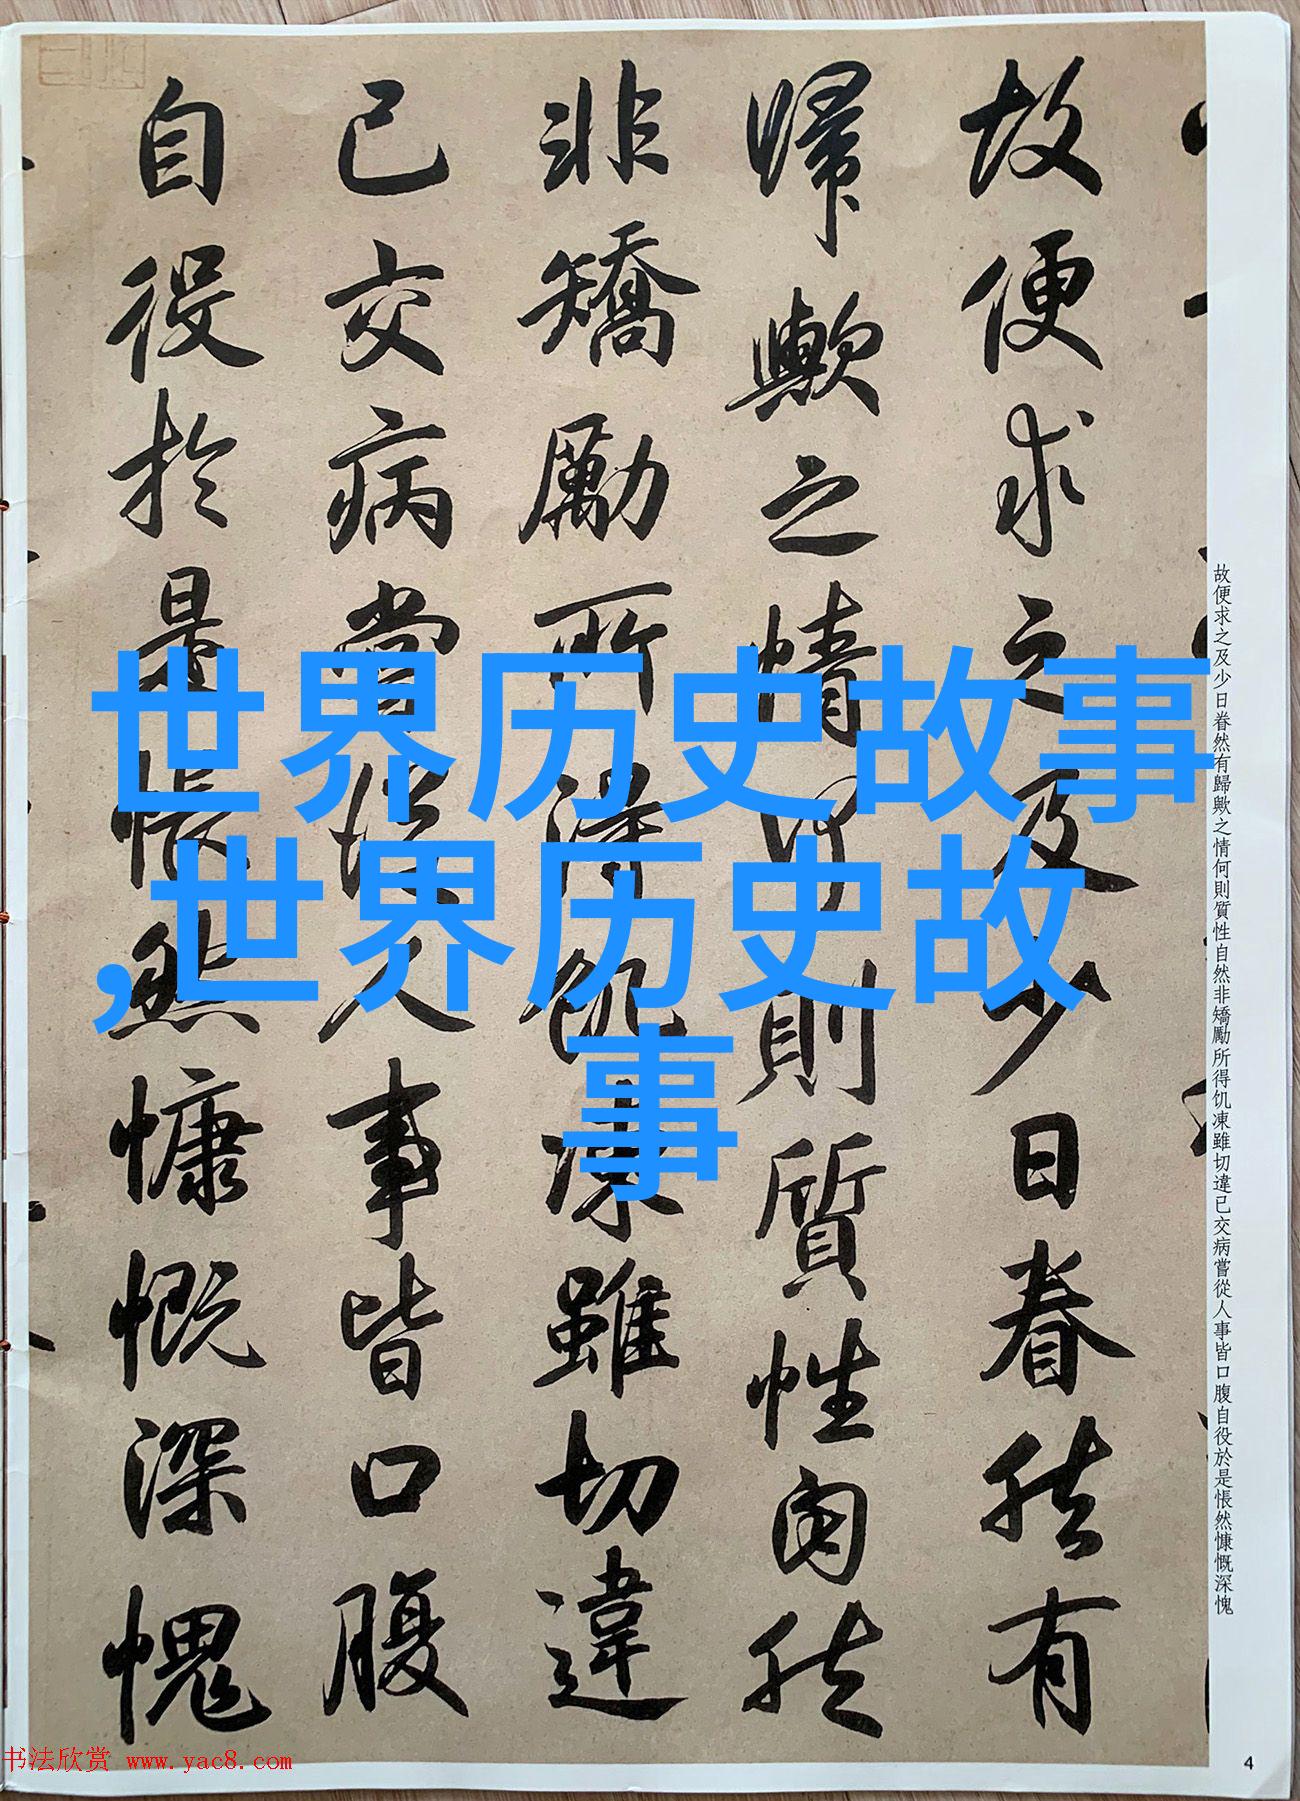 故便求之及少日眷然有
歸歟之情何則質性自然
非矯勵所得飢凍雖切違
已交病嘗從人事皆口腹
自役於是悵然慷慨深愧
故便求之及少日眷然有歸歟之情何則質性自然非矯勵所得饥凍雖切違已交病嘗從人事皆口腹自役於是悵然慷慨深愧
世界历史故事
,世界历史故
事
书法欣赏 www.yac8.com
4